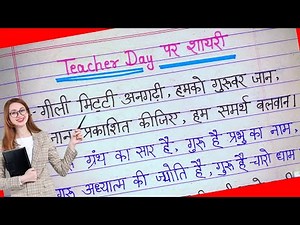 Teacher Day पर शायरी
गीली मिट्टी अनगढ़ी, हमको गुरूवर जान,
प्रकाशित कीजिए, हम समर्थ बलवान।
ग्रंथ का सार है, गुरू है प्रभु का नाम,
गुरू अध्यात्म की ज्योति है, गुरू है चारो धाम